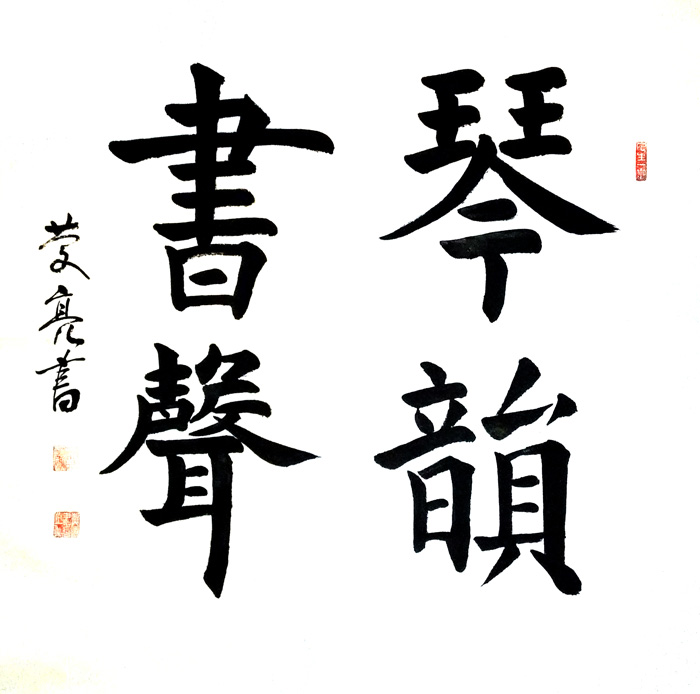 琴韻
書聲
亮書